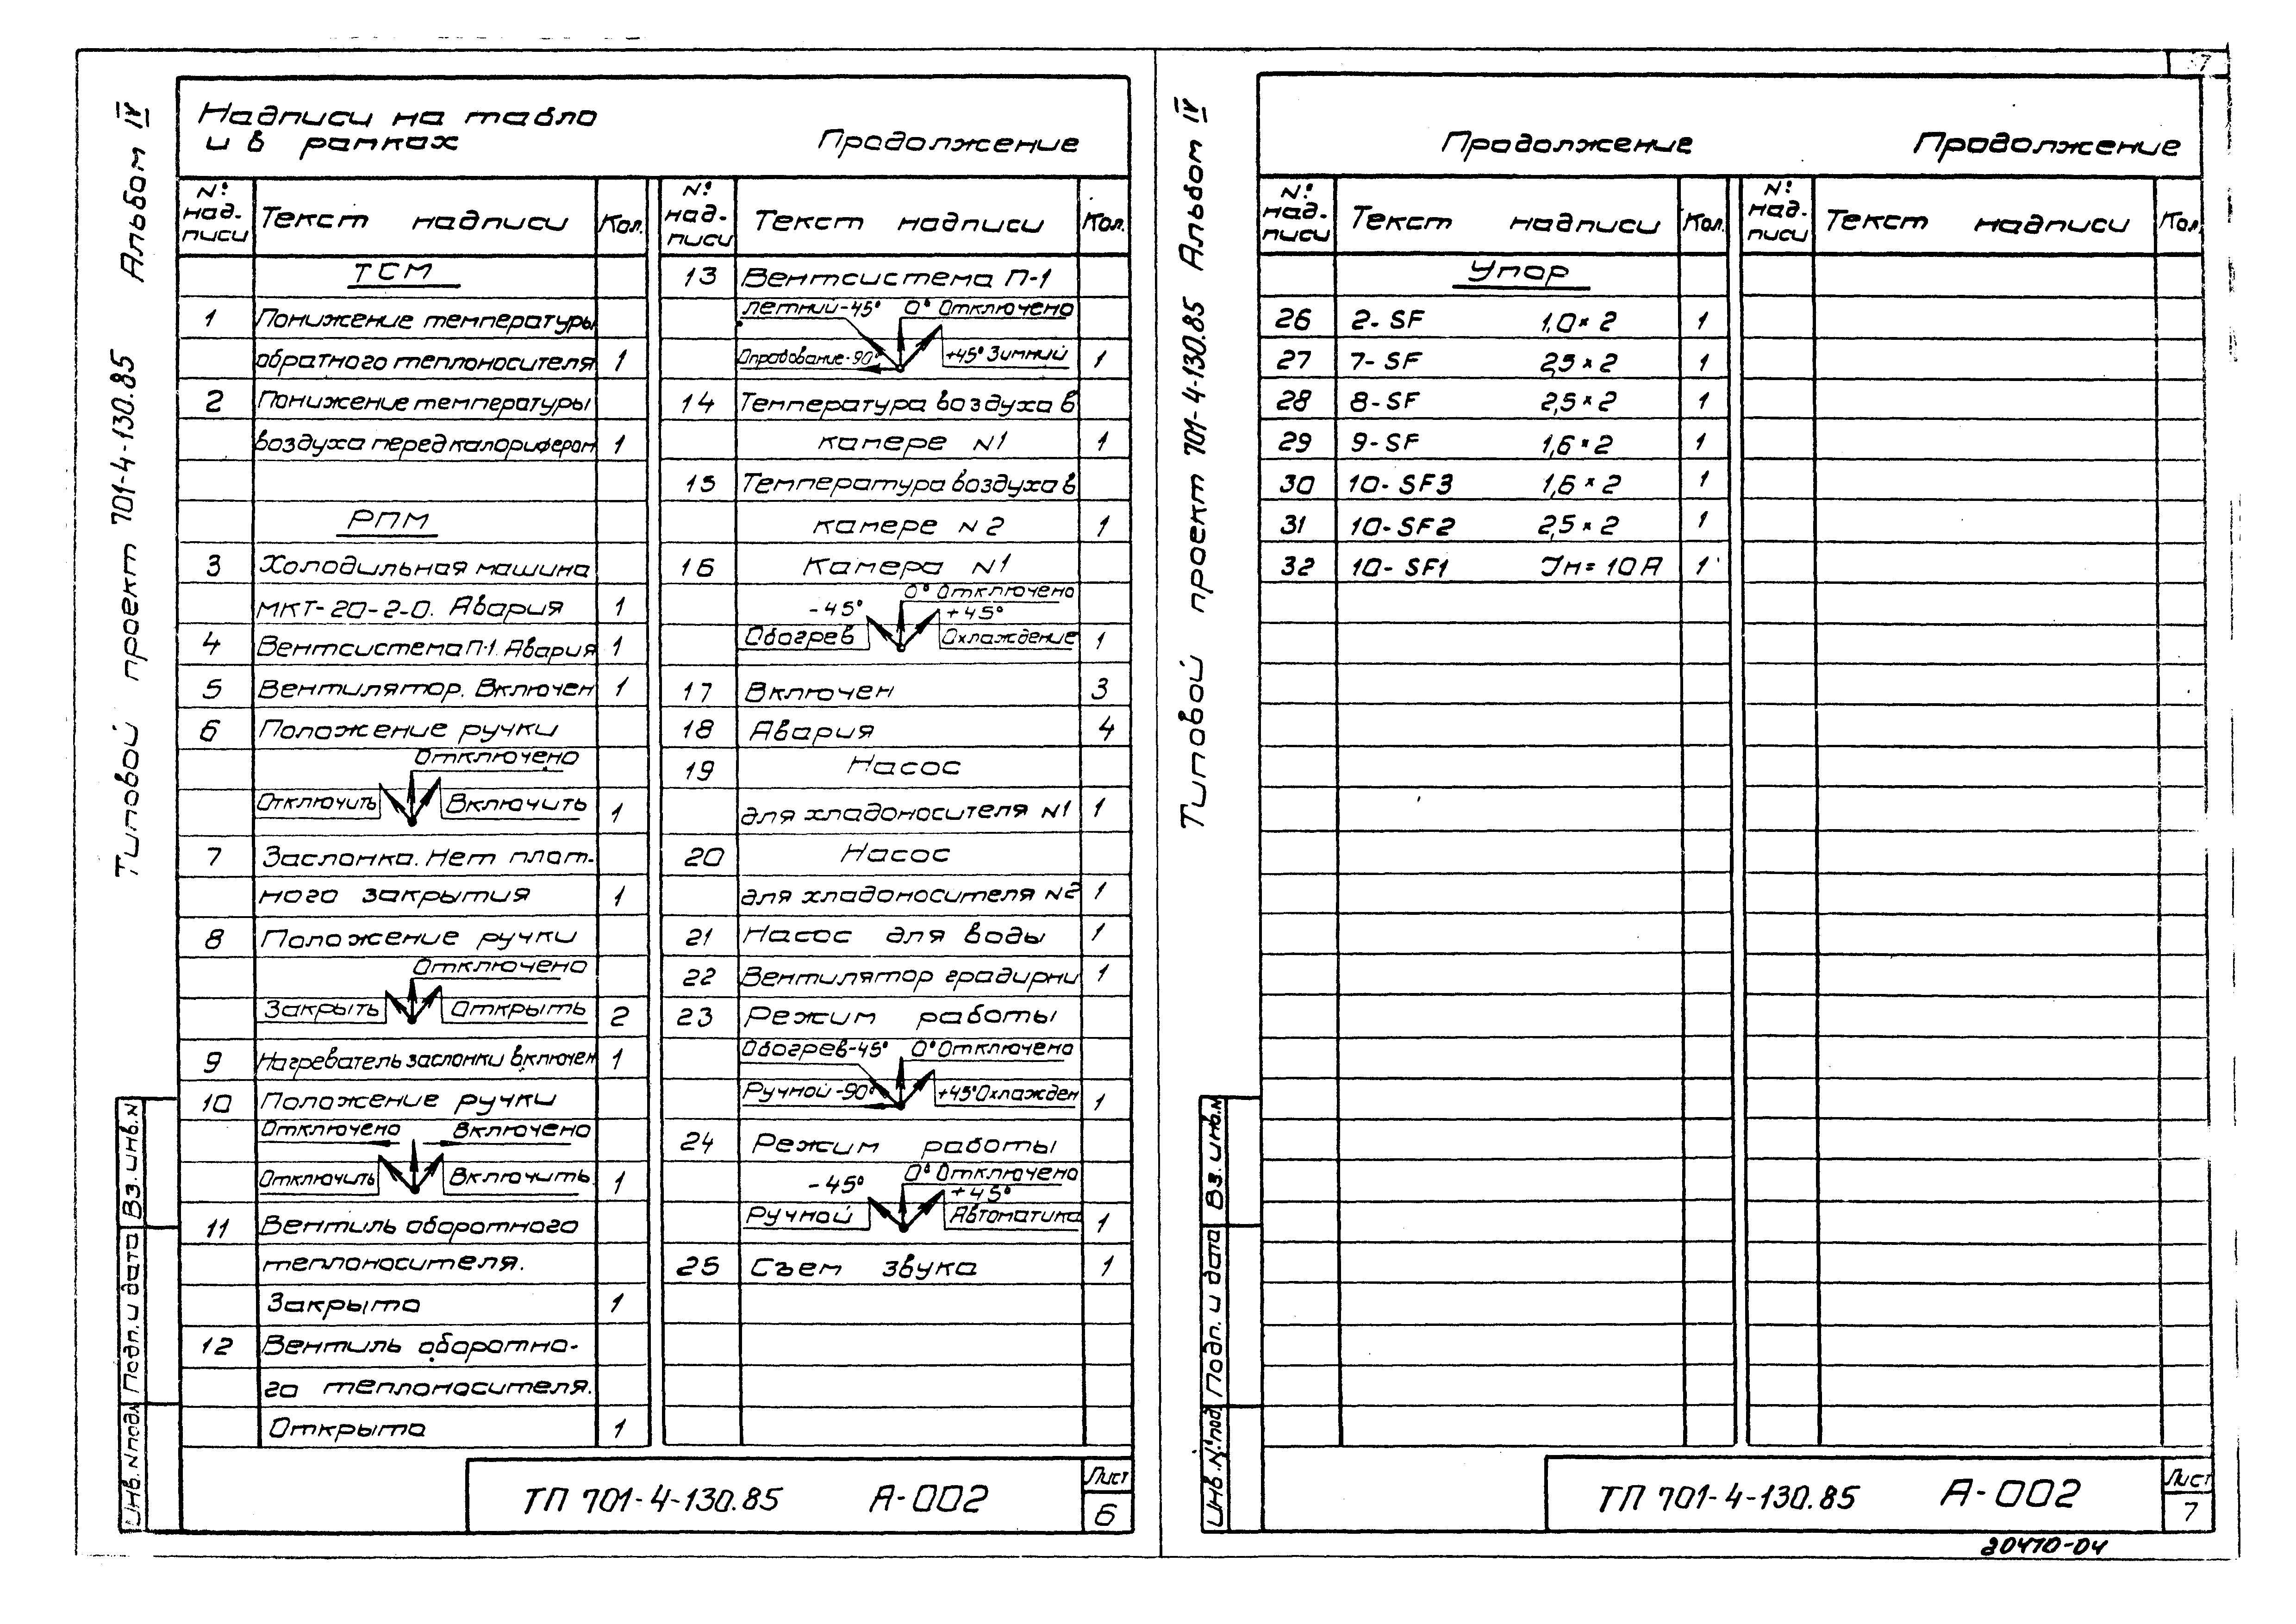 7
Типовой проект 701-4-130.85 Альбом IV
Надписи на табло
и в рамках
Продолжение
№ над-писи Текст надписи Кол.
ТСМ
1 Понижение температуры
обратного теплоносителя 1
2 Понижение температуры
воздуха перед калорифером 1
РПМ
3 Холодильная машина
МКТ-20-2-0. Авария 1
4 Вентсистема П-1. Авария 1
5 Вентилятор. Включен 1
6 Положение ручки
Отключено
Отключить Включить 1
7 Заслонка. Нет плот-
ного закрытия 1
8 Положение ручки
Отключено
Закрыть Открыть 2
9 Нагреватель заслонки включен 1
10 Положение ручки
Отключено Включено
Отключить Включить 1
11 Вентиль оборотного
теплоносителя.
Закрыто 1
12 Вентиль оборотно-
го теплоносителя.
Открыто 1
№ над-писи Текст надписи Кол.
13 Вентсистема П-1
летний-45° 0° Отключено
Опробование-90° +45° Зимний 1
14 Температура воздуха в
камере N1 1
15 Температура воздуха в
камере N2 1
16 Камера N1
0° Отключено
-45° +45°
Обогрев Охлаждение 1
17 Включен 3
18 Авария 4
19 Насос
для хладоносителя N1 1
20 Насос
для хладоносителя N2 1
21 Насос для воды 1
22 Вентилятор градирни 1
23 Режим работы
Обогрев-45° 0° Отключено
Ручной-90° +45° Охлажден 1
24 Режим работы
0° Отключено
-45° +45°
Ручной Автоматика 1
25 Съем звука 1
Инв. N подл. Подп. и дата Вз. инв. N
ТП 701-4-130.85 А-002
Лист
6
Типовой проект 701-4-130.85 Альбом IV
Продолжение Продолжение
№ над-писи Текст надписи Кол.
Упор
26 2-SF 1,0×2 1
27 7-SF 2,5×2 1
28 8-SF 2,5×2 1
29 9-SF 1,6×2 1
30 10-SF3 1,6×2 1
31 10-SF2 2,5×2 1
32 10-SF1 Jн=10А 1
№ над-писи Текст надписи Кол.
Инв. № под. Подп. и дата Вз. инв. N
ТП 701-4-130.85 А-002
Лист
7
20470-04